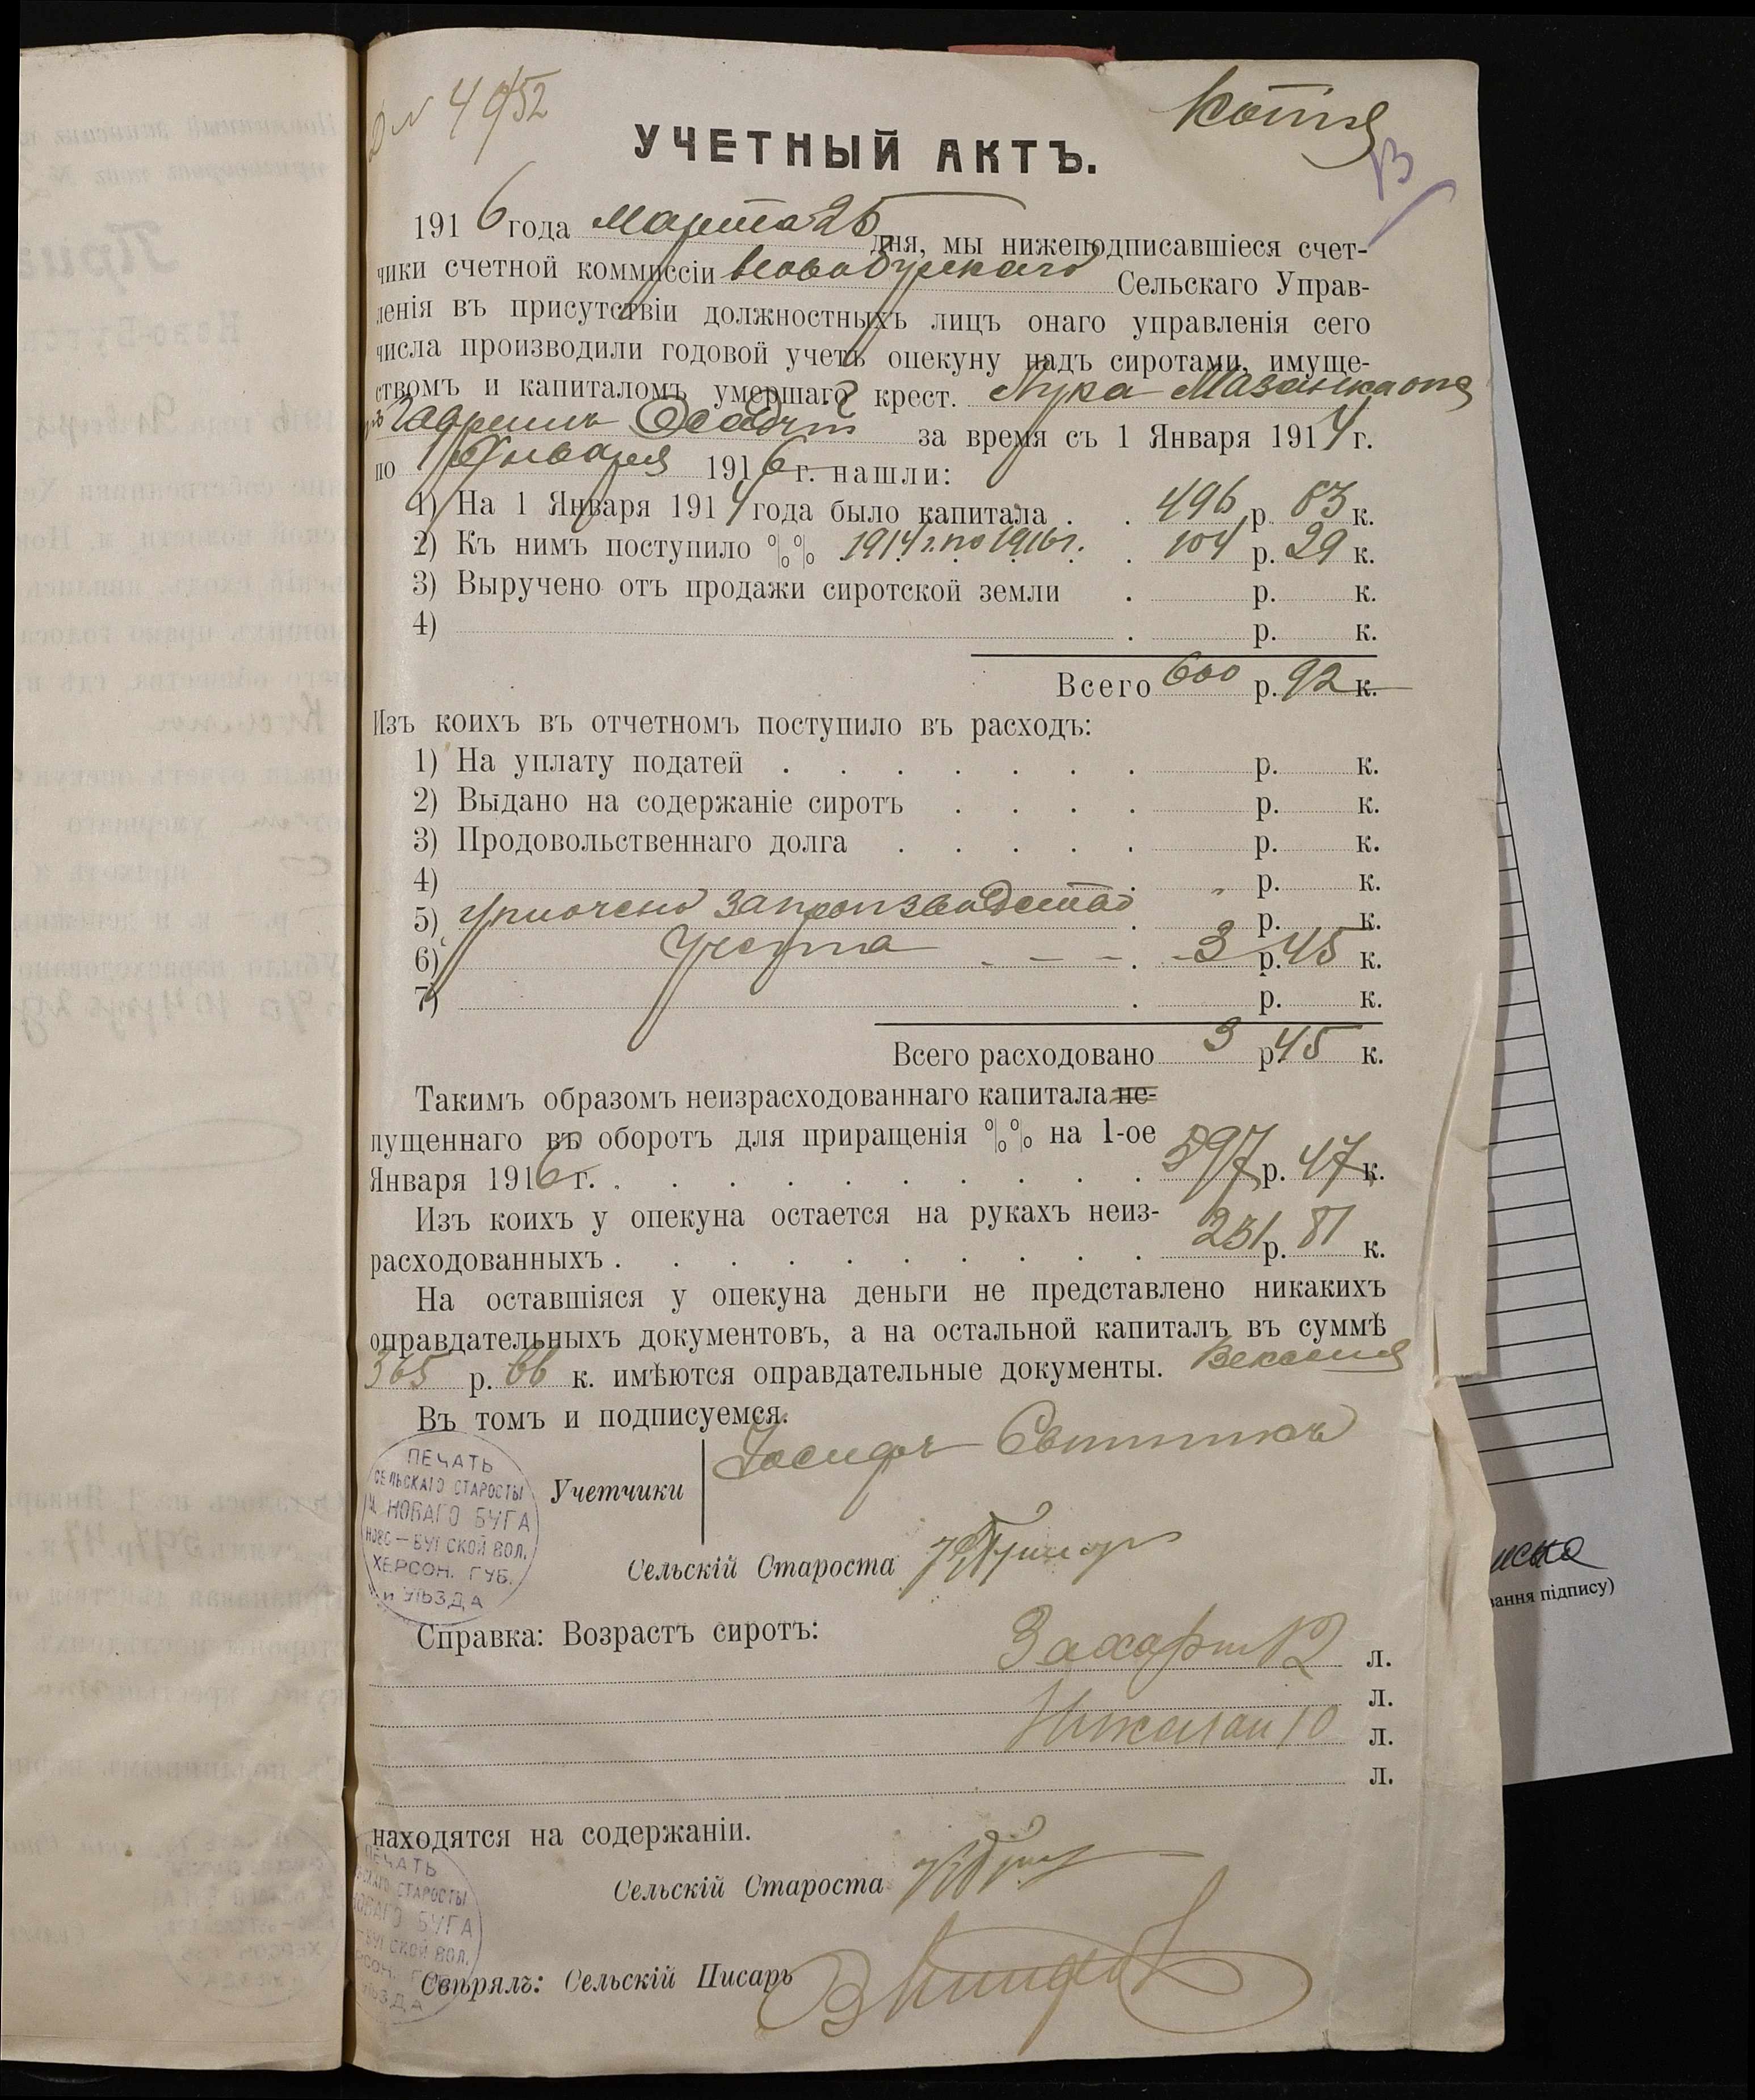 № 4952
Копія
В
УЧЕТНЫЙ АКТЪ.
1916 года Марта 25 дня, мы нижеподписавшіеся счет-
чики счетной коммиссіи Новобугскаго Сельскаго Управ-
ленія въ присутствіи должностныхъ лицъ онаго управленія сего
числа производили годовой учетъ опекуну надъ сиротами, имуще-
ствомъ и капиталомъ умершаго крест. Лука Мазанка опе
Гавриилъ Осадчій за время съ 1 Января 1914 г.
по 1 Января 1916 г. нашли:
1) На 1 Января 1914 года было капитала . . 496 р. 63 к.
2) Къ нимъ поступило %% 1914 г. по 1916 г. . 104 р. 29 к.
3) Выручено отъ продажи сиротской земли . р. к.
4) . р. к.
Всего 600 р. 92 к.
Изъ коихъ въ отчетномъ поступило въ расходъ:
1) На уплату податей . . . . . . . р. к.
2) Выдано на содержаніе сиротъ . . . . р. к.
3) Продовольственнаго долга . . . . . р. к.
4) . р. к.
5) Уплочено за производство . р. к.
6) Учета - - - . 3 р. 45 к.
7) . р. к.
Всего расходовано 3 р. 45 к.
Такимъ образомъ неизрасходованнаго капитала не-
пущеннаго въ оборотъ для приращенія %% на 1-ое
Января 1916 г. . . . . . . . . . . 597 р. 47 к.
Изъ коихъ у опекуна остается на рукахъ неиз-
расходованныхъ . . . . . . . . . . 231 р. 81 к.
На оставшіяся у опекуна деньги не представлено никакихъ
оправдательныхъ документовъ, а на остальной капиталъ въ суммѣ
365 р. 66 к. имѣются оправдательные документы. Векселя
Въ томъ и подписуемся.
Учетчики Іосифъ
ПЕЧАТЬ
СЕЛЬСКАГО СТАРОСТЫ
М. НОВАГО БУГА
НОВО-БУГСКОЙ ВОЛ.
ХЕРСОН. ГУБ.
И УѢЗДА
Сельскій Староста
Справка: Возрастъ сиротъ:
Захарій 12 л.
л.
Николай 10 л.
л.
находятся на содержаніи.
Сельскій Староста
ПЕЧАТЬ
СТАРОСТЫ
НОВАГО БУГА
БУГСКОЙ ВОЛ.
Свѣрялъ: Сельскій Писарь
вання підпису)